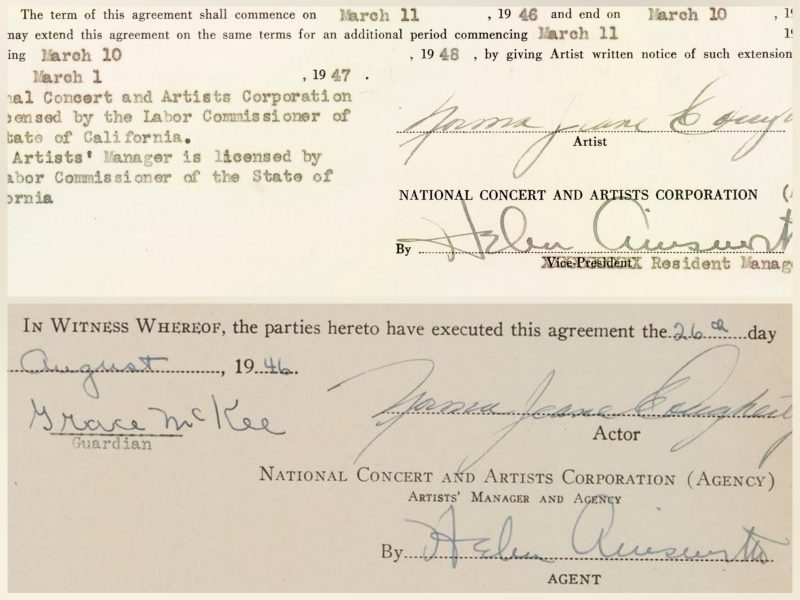 The term of this agreement shall commence on March 11, 1946 and end on March 10, 1
may extend this agreement on the same terms for an additional period commencing March 11
ing March 10, 1948, by giving Artist written notice of such extension
March 1, 1947.
al Concert and Artists Corporation
censed by the Labor Commissioner of
tate of California.
Artists' Manager is licensed by
abor Commissioner of the State of
ornia
Norma Jeane
Artist
NATIONAL CONCERT AND ARTISTS CORPORATION (
By Helen Ainsworth
Vice-President Resident Manag
IN WITNESS WHEREOF, the parties hereto have executed this agreement the 26th day
August, 1946.
Grace McKee
Guardian
Norma Jeane Dougherty
Actor
NATIONAL CONCERT AND ARTISTS CORPORATION (AGENCY)
ARTISTS' MANAGER AND AGENCY
By Helen Ainsworth
AGENT